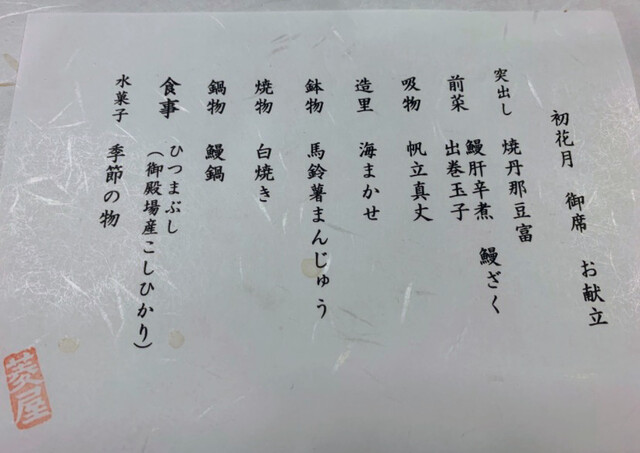 初花月 御席 お献立
突出し 焼丹那豆富
前菜 鰻肝辛煮 鰻ざく
出巻玉子
吸物 帆立真丈
造里 海まかせ
鉢物 馬鈴薯まんじゅう
焼物 白焼き
鍋物 鰻鍋
食事 ひつまぶし
(御殿場産こしひかり)
水菓子 季節の物
菱屋